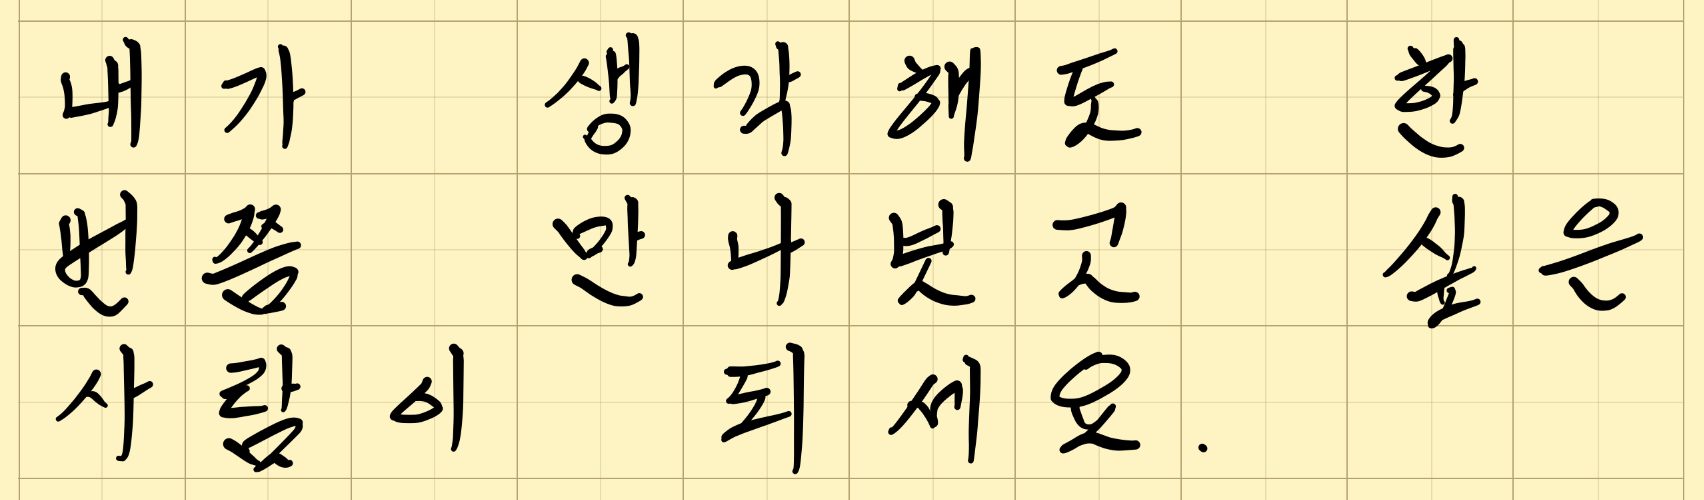 내가 생각해도 한
번쯤 만나봇고 싶은
사람이 되세요.